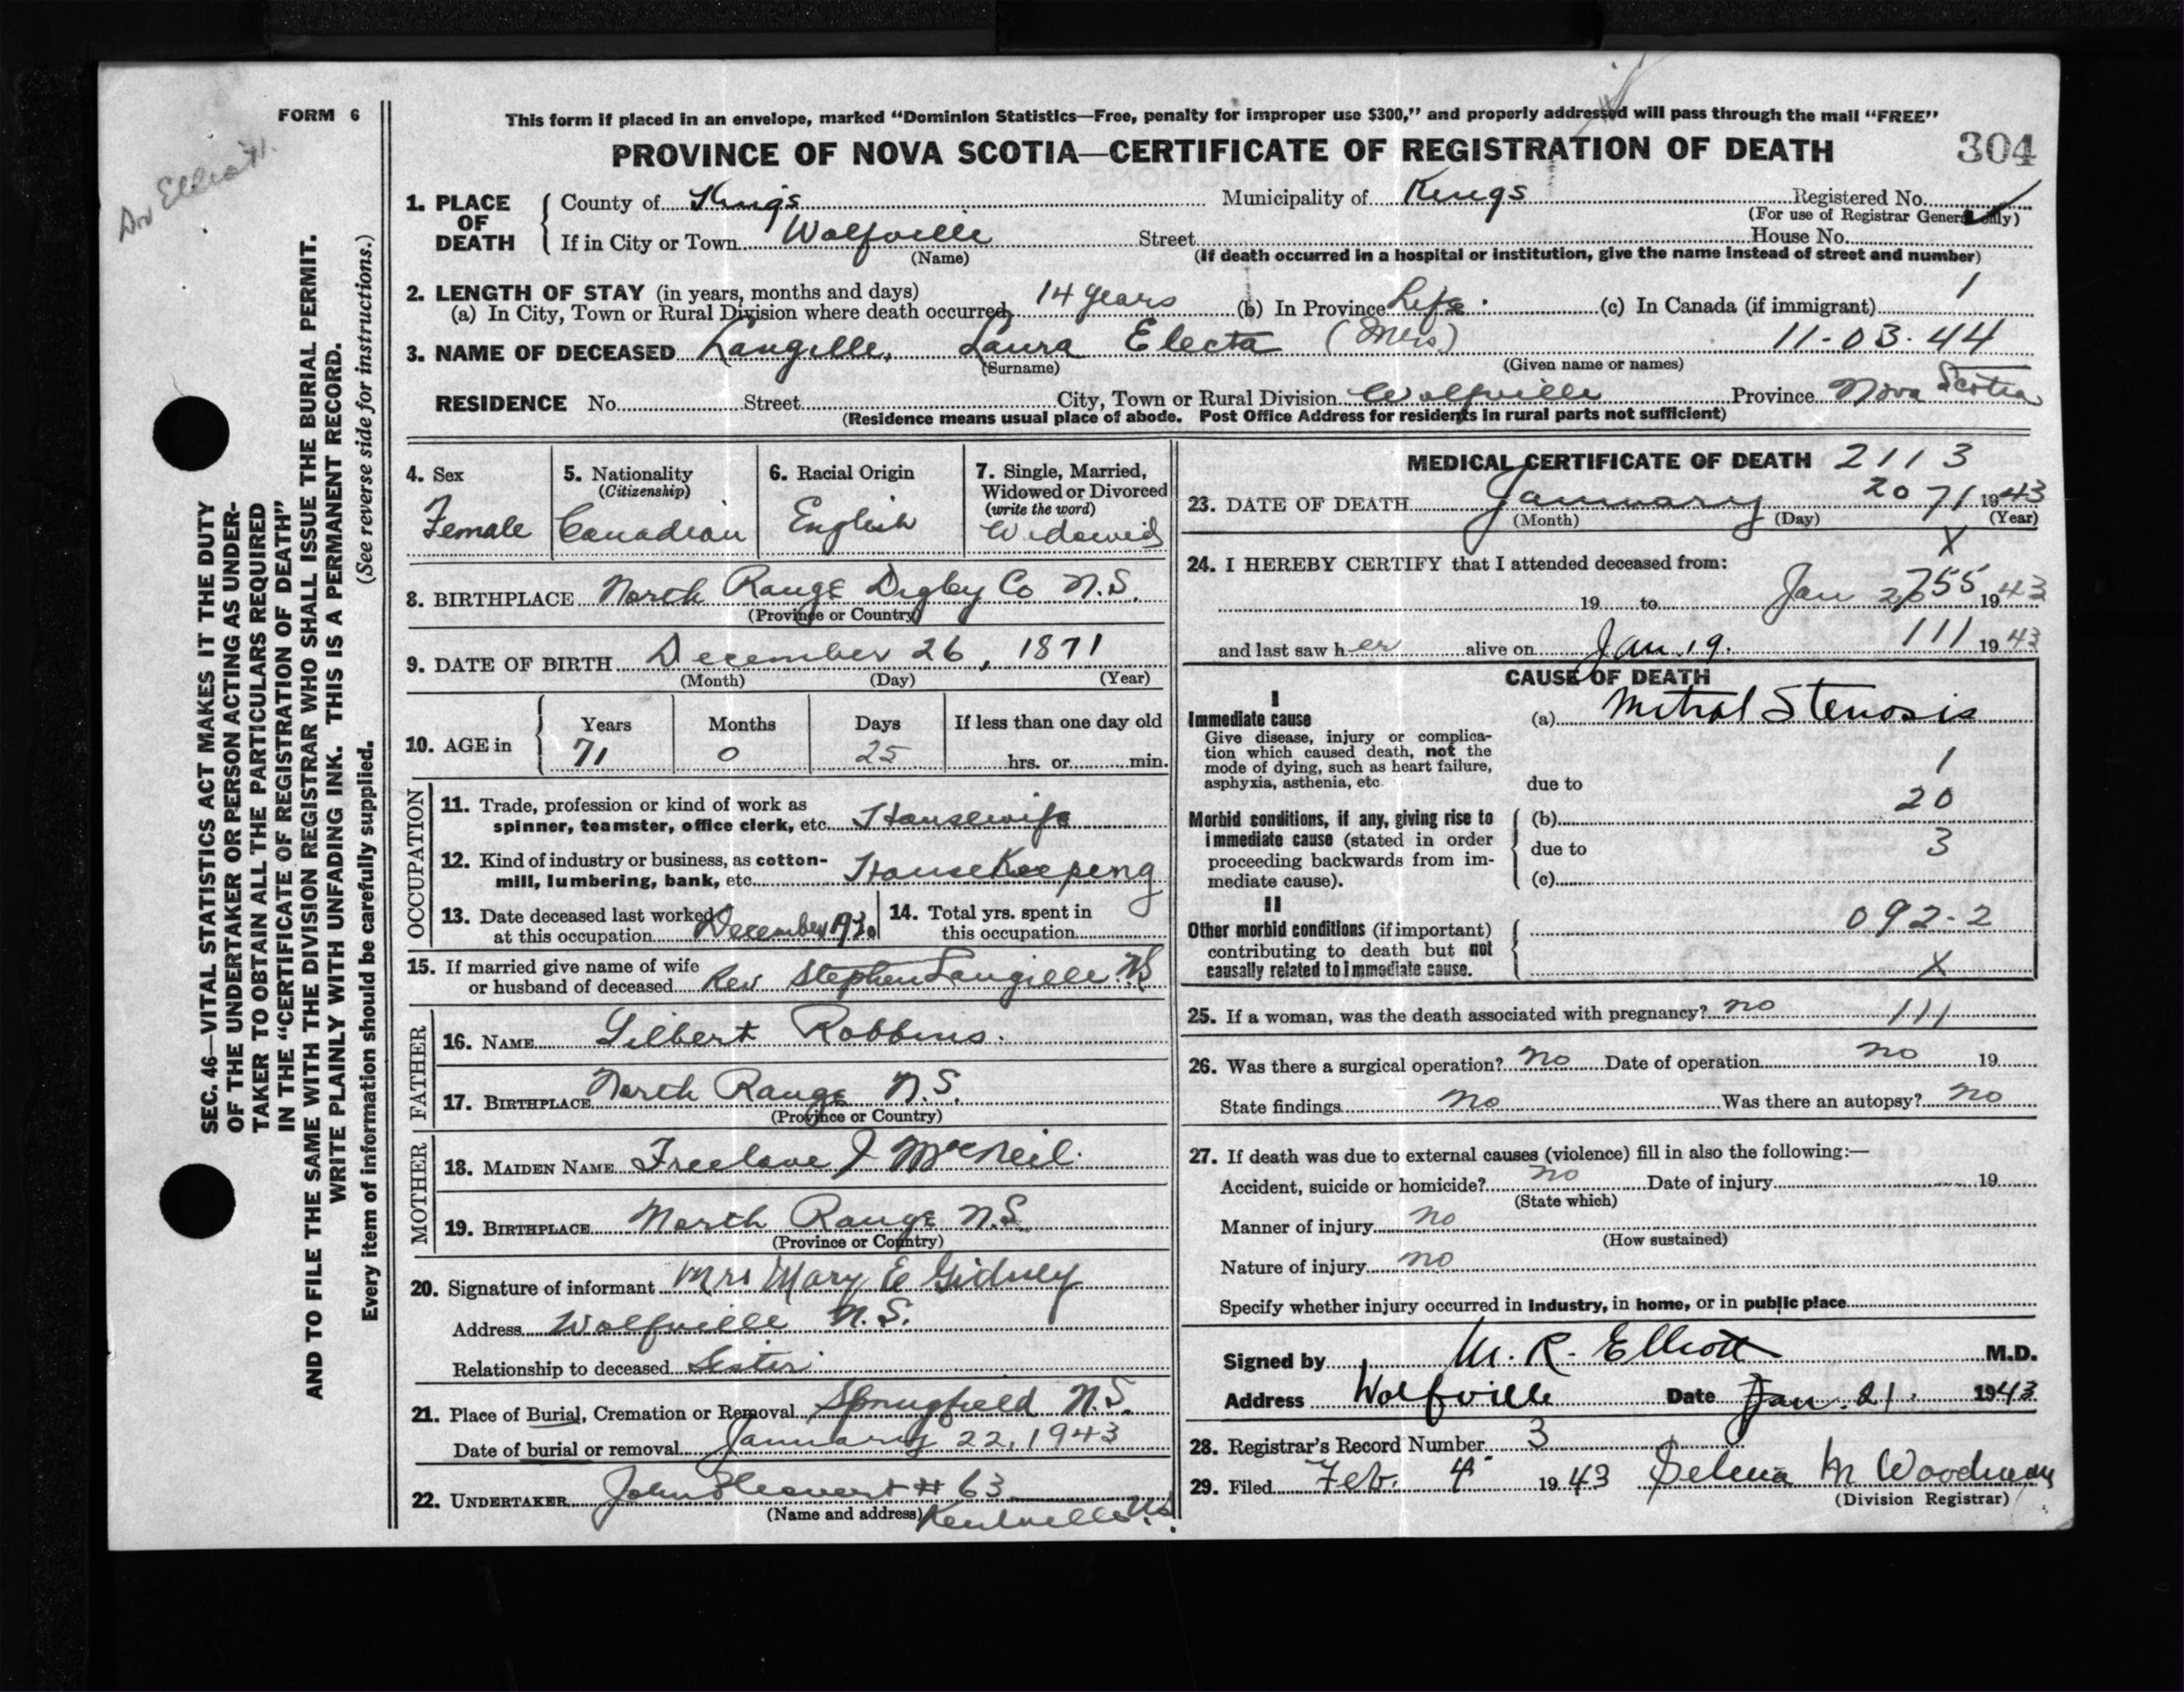 FORM 6
Dr Elliott
SEC. 46—VITAL STATISTICS ACT MAKES IT THE DUTY
OF THE UNDERTAKER OR PERSON ACTING AS UNDER-
TAKER TO OBTAIN ALL THE PARTICULARS REQUIRED
IN THE "CERTIFICATE OF REGISTRATION OF DEATH"
AND TO FILE THE SAME WITH THE DIVISION REGISTRAR WHO SHALL ISSUE THE BURIAL PERMIT.
WRITE PLAINLY WITH UNFADING INK. THIS IS A PERMANENT RECORD.
Every item of information should be carefully supplied. (See reverse side for instructions.)
This form if placed in an envelope, marked "Dominion Statistics—Free, penalty for improper use $300," and properly addressed will pass through the mail "FREE"
PROVINCE OF NOVA SCOTIA—CERTIFICATE OF REGISTRATION OF DEATH 304
1. PLACE OF DEATH County of Kings Municipality of Kings Registered No.
(For use of Registrar General only)
If in City or Town Wolfville Street House No.
(Name) (If death occurred in a hospital or institution, give the name instead of street and number)
2. LENGTH OF STAY (in years, months and days) 1
(a) In City, Town or Rural Division where death occurred 14 years (b) In Province Life. (c) In Canada (if immigrant)
3. NAME OF DECEASED Langille, Laura Electa (Mrs) 11-03-44
(Surname) (Given name or names)
RESIDENCE No. Street City, Town or Rural Division Wolfville Province Nova Scotia
(Residence means usual place of abode. Post Office Address for residents in rural parts not sufficient)
4. Sex
Female
5. Nationality
(Citizenship)
Canadian
6. Racial Origin
English
7. Single, Married,
Widowed or Divorced
(write the word)
Widowed
8. BIRTHPLACE North Range Digby Co N.S.
(Province or Country)
9. DATE OF BIRTH December 26, 1871
(Month) (Day) (Year)
10. AGE in Years Months Days If less than one day old
71 0 25 hrs. or min.
OCCUPATION
11. Trade, profession or kind of work as
spinner, teamster, office clerk, etc. Housewife
12. Kind of industry or business, as cotton-
mill, lumbering, bank, etc. HouseKeeping
13. Date deceased last worked
at this occupation December
14. Total yrs. spent in
this occupation
15. If married give name of wife
or husband of deceased Rev Stephen Langille N.S
FATHER
16. NAME Gilbert Robbins.
17. BIRTHPLACE North Range N.S.
(Province or Country)
MOTHER
18. MAIDEN NAME Freelove J McNeil.
19. BIRTHPLACE North Range N.S.
(Province or Country)
20. Signature of informant Mrs Mary E Gidney
Address Wolfville N.S.
Relationship to deceased Sister.
21. Place of Burial, Cremation or Removal Springfield N.S.
Date of burial or removal January 22, 1943
22. UNDERTAKER John # 63
(Name and address) Kentville N.S.
MEDICAL CERTIFICATE OF DEATH 2113
23. DATE OF DEATH January 20 71 1943
(Month) (Day) (Year)
X
24. I HEREBY CERTIFY that I attended deceased from:
19 to Jan 755 1943
and last saw her alive on Jan. 19. 111 1943
CAUSE OF DEATH
I
Immediate cause (a) Mitral Stenosis
Give disease, injury or complica-
tion which caused death, not the
mode of dying, such as heart failure,
asphyxia, asthenia, etc. due to 1
20
Morbid conditions, if any, giving rise to (b)
immediate cause (stated in order due to 3
proceeding backwards from im-
mediate cause). (c)
II
Other morbid conditions (if important) 092-2
contributing to death but not
causally related to immediate cause. X
25. If a woman, was the death associated with pregnancy? no 111
26. Was there a surgical operation? no Date of operation no 19
State findings no Was there an autopsy? no
27. If death was due to external causes (violence) fill in also the following:—
Accident, suicide or homicide? no Date of injury 19
(State which)
Manner of injury no
(How sustained)
Nature of injury no
Specify whether injury occurred in industry, in home, or in public place
Signed by M. R. Elliott M.D.
Address Wolfville Date Jan. 21. 1943
28. Registrar's Record Number 3
29. Filed Feb. 4 1943 Selena M Woodman
(Division Registrar)